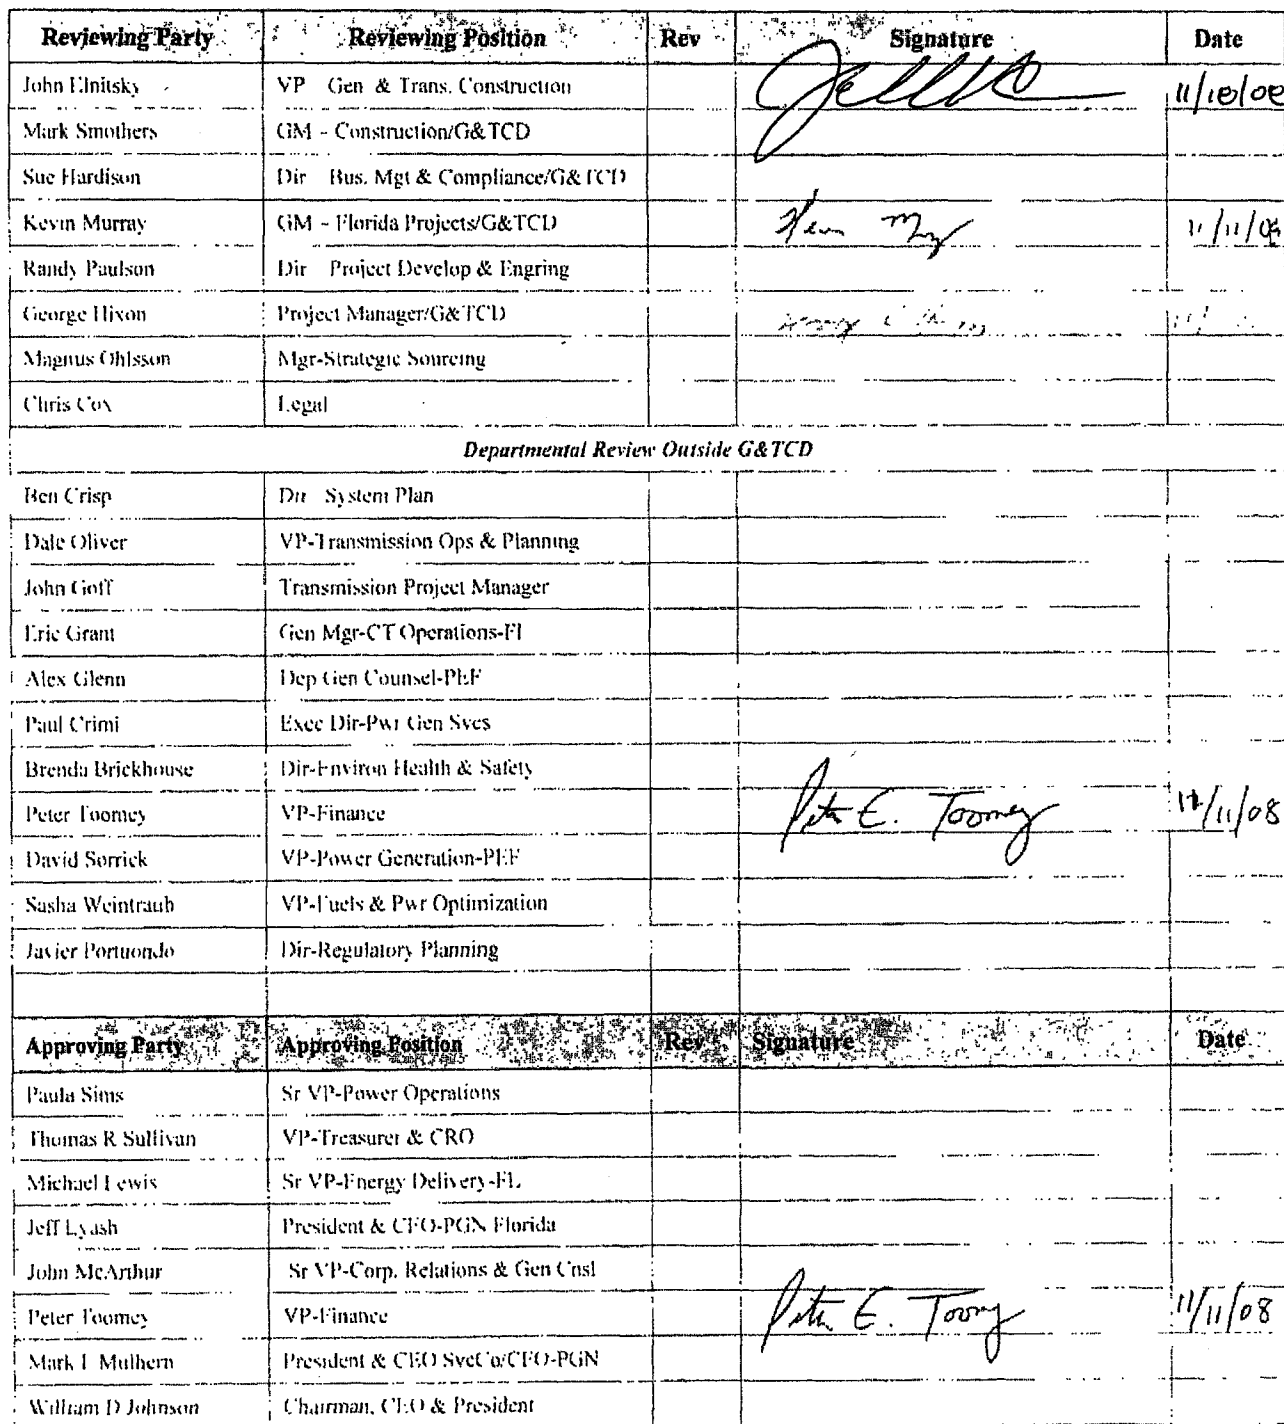 Reviewing Party Reviewing Position Rev Signature Date
John Elnitsky VP Gen & Trans. Construction 11/10/08
Mark Smothers GM - Construction/G&TCD
Sue Hardison Dir Bus. Mgt & Compliance/G&TCD
Kevin Murray GM - Florida Projects/G&TCD 11/11/08
Randy Paulson Dir Project Develop & Engring
George Hixon Project Manager/G&TCD
Magnus Ohlsson Mgr-Strategic Sourcing
Chris Cox Legal
Departmental Review Outside G&TCD
Ben Crisp Dir System Plan
Dale Oliver VP-Transmission Ops & Planning
John Goff Transmission Project Manager
Eric Grant Gen Mgr-CT Operations-Fl
Alex Glenn Dep Gen Counsel-PEF
Paul Crimi Exec Dir-Pwr Gen Svcs
Brenda Brickhouse Dir-Environ Health & Safety
Peter Toomey VP-Finance Peter E. Toomey 11/11/08
David Sorrick VP-Power Generation-PEF
Sasha Weintraub VP-Fuels & Pwr Optimization
Javier Portuondo Dir-Regulatory Planning
Approving Party Approving Position Rev Signature Date
Paula Sims Sr VP-Power Operations
Thomas R Sullivan VP-Treasurer & CRO
Michael Lewis Sr VP-Energy Delivery-FL
Jeff Lyash President & CEO-PGN Florida
John McArthur Sr VP-Corp. Relations & Gen Cnsl
Peter Toomey VP-Finance Peter E. Toomey 11/11/08
Mark F Mulhern President & CEO SvcCo/CFO-PGN
William D Johnson Chairman, CEO & President